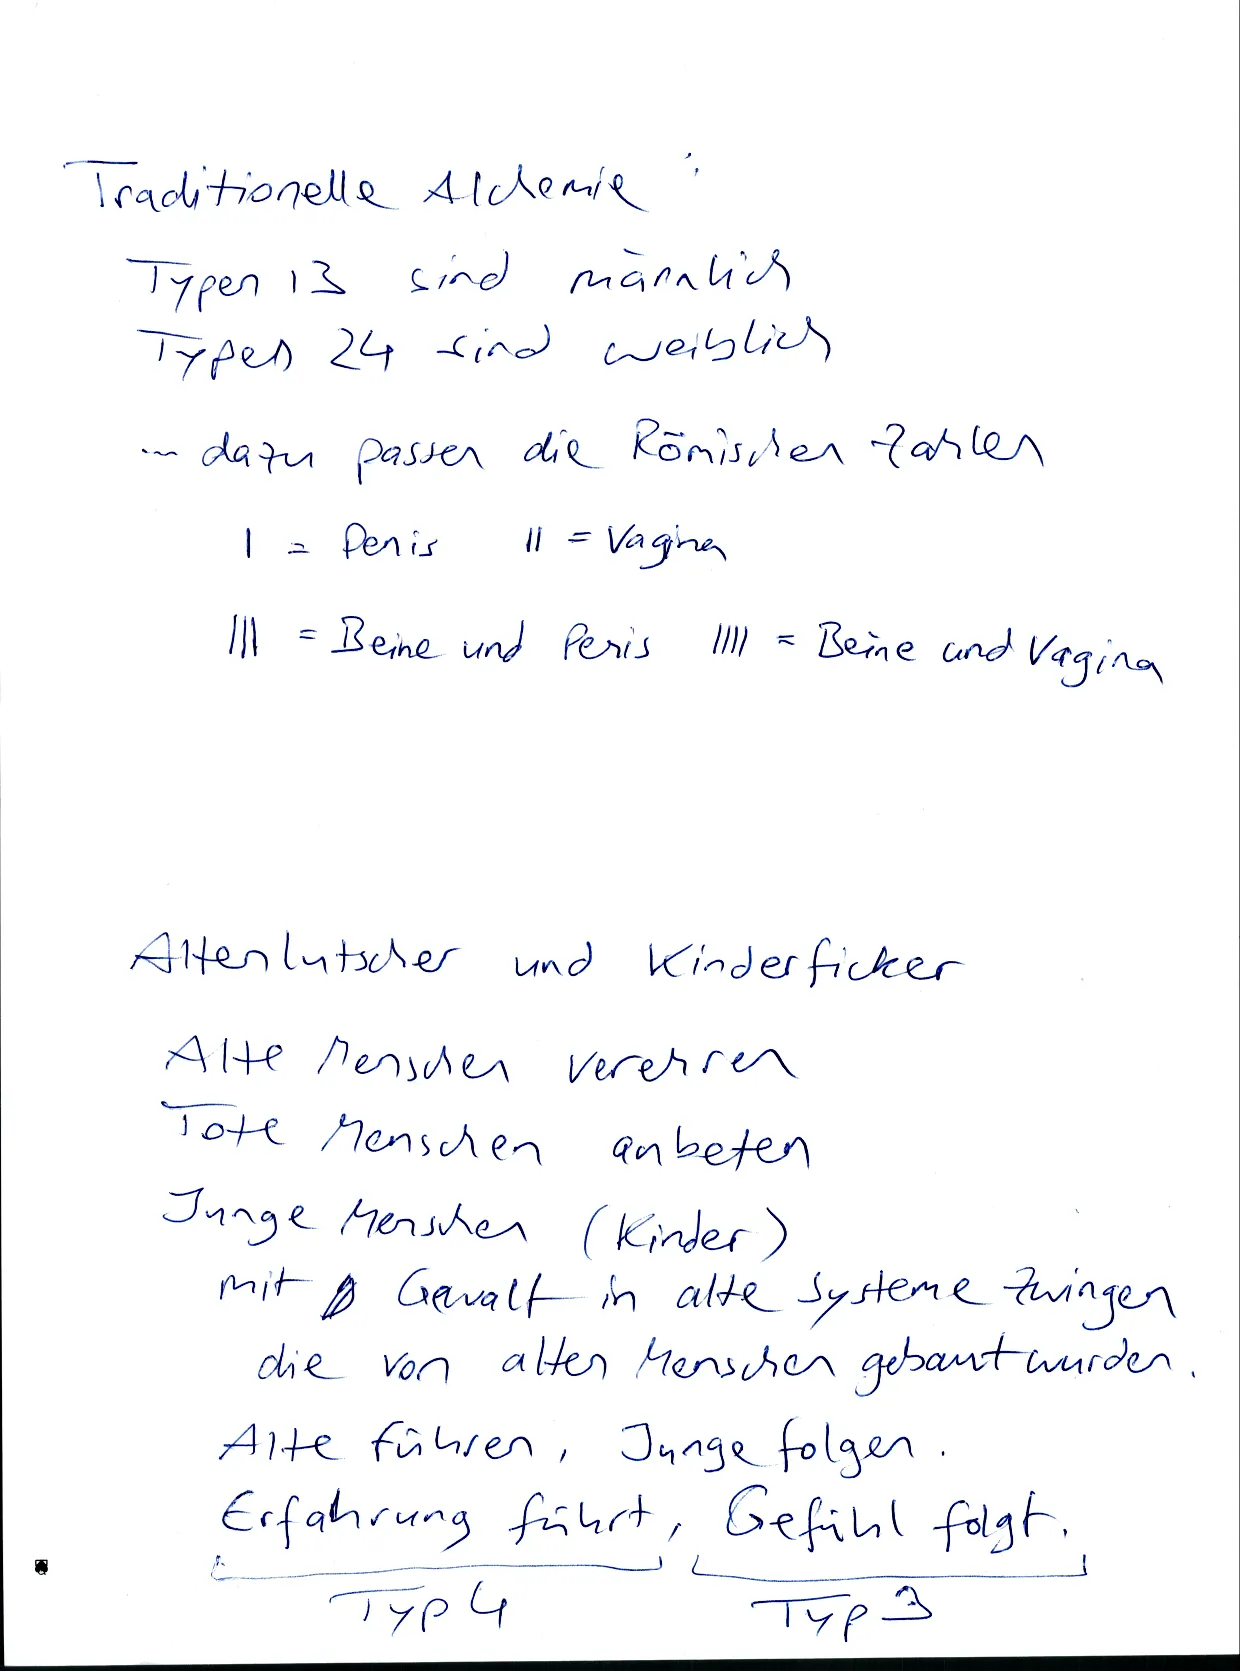 Traditionelle Alchemie :
Typen 13 sind männlich
Typen 24 sind weiblich
... dazu passen die Römischen Zahlen
I = Penis II = Vagina
III = Beine und Penis IIII = Beine und Vagina
Altenlutscher und Kinderficker
Alte Menschen verehren
Tote Menschen anbeten
Junge Menschen (Kinder)
mit Gewalt in alte Systeme zwingen
die von alten Menschen gebaut wurden.
Alte führen, Junge folgen.
Erfahrung führt, Gefühl folgt.
Typ 4 Typ 3